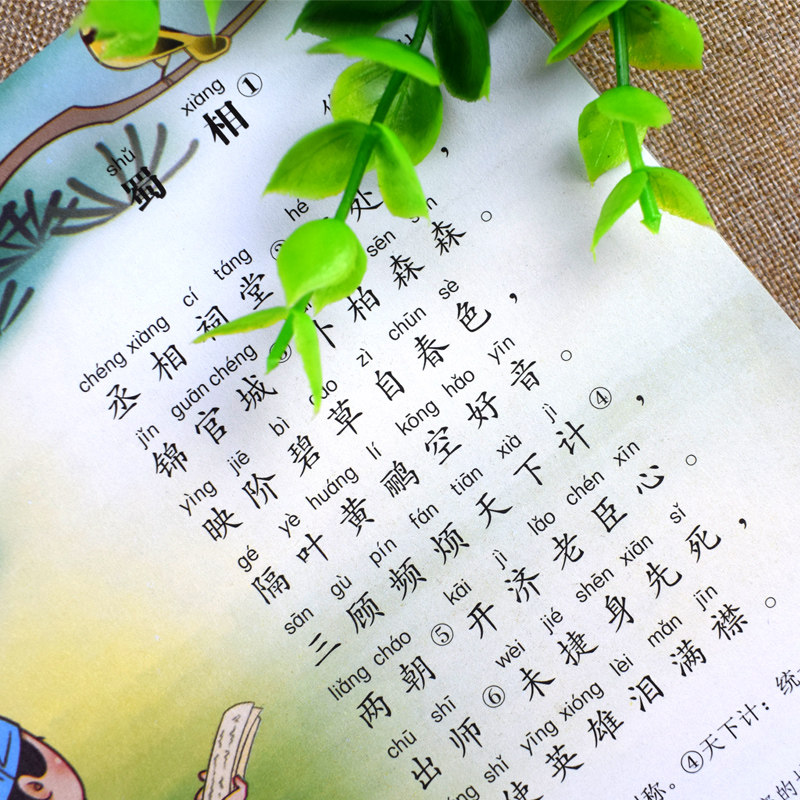 shǔ xiàng
蜀 相①
chéng xiàng cí táng hé
丞相祠堂处，
jǐn guān chéng sēn
锦官城柏森森。
yìng jiē bì zì chūn sè
映阶碧草自春色，
gé yè huáng lí kōng hǎo yīn
隔叶黄鹂空好音。
sān gù pín fán tiān xià jì
三顾频烦天下计④，
liǎng cháo kāi jì lǎo chén xīn
两朝⑤开济老臣心。
chū shī wèi jié shēn xiān sǐ
出师⑥未捷身先死，
shǐ yīng xióng lèi mǎn jīn
使英雄泪满襟。
称。④天下计：统
的